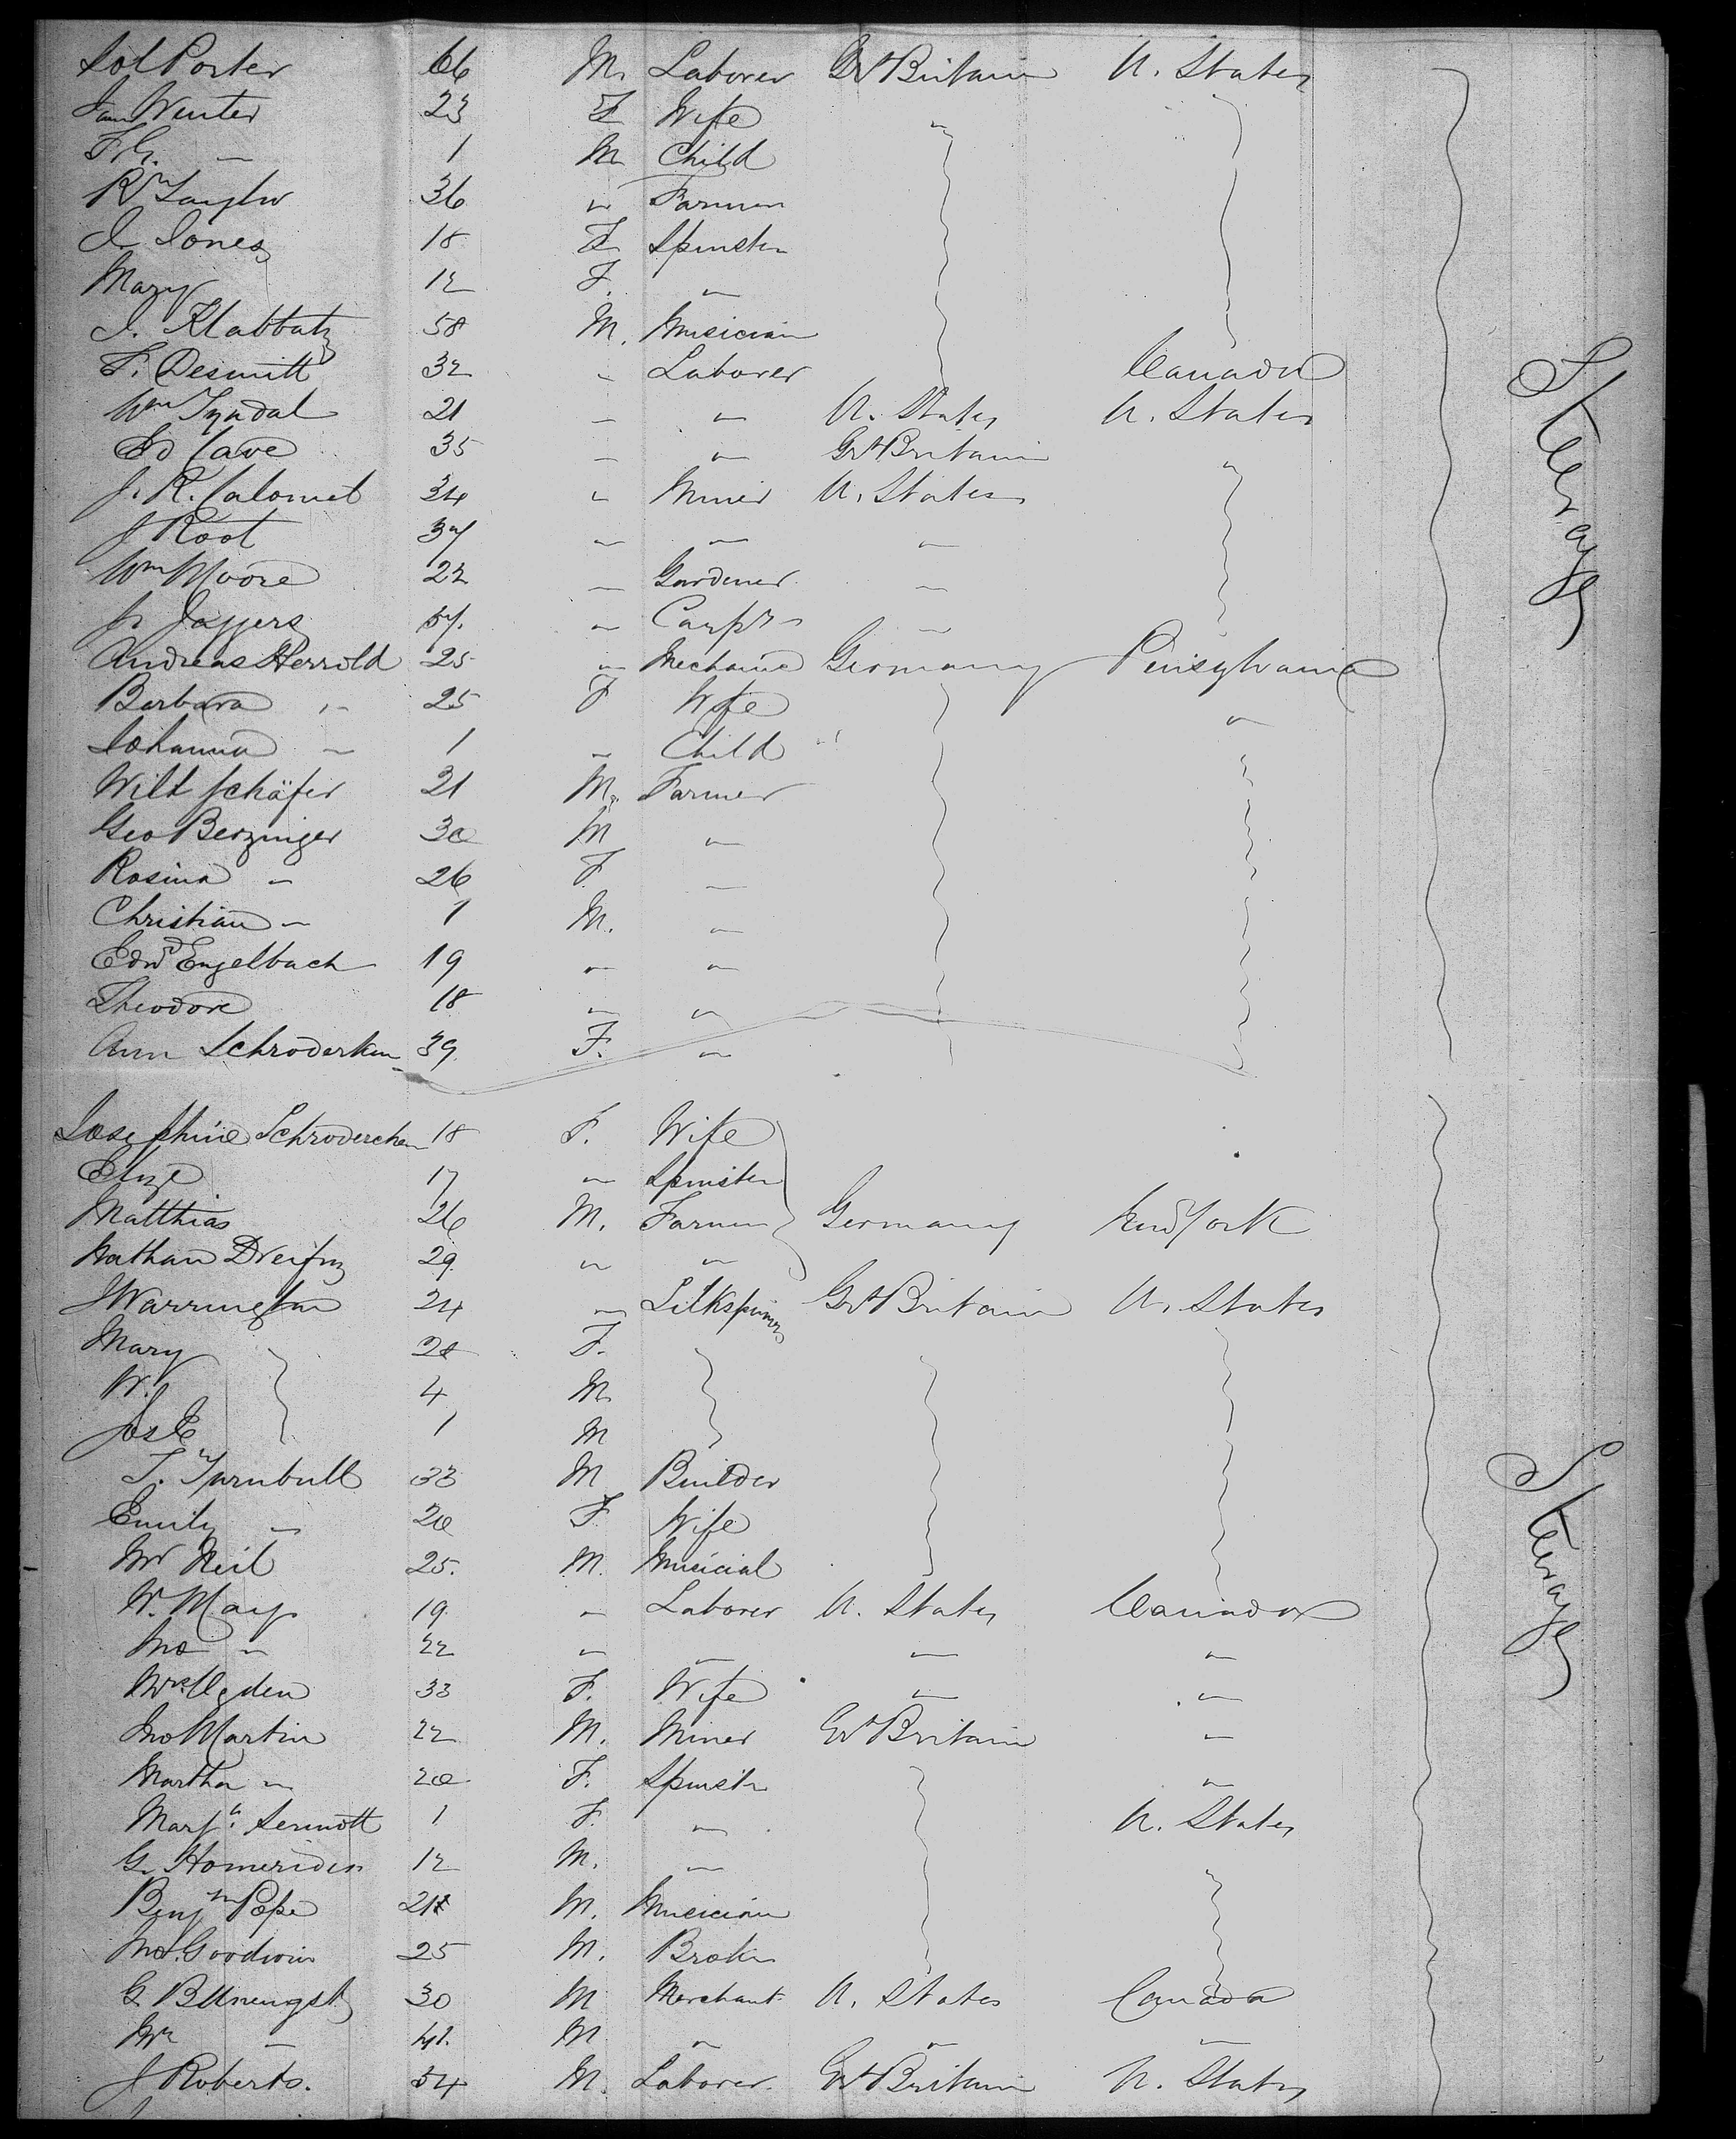 Sol Porter 66 M. Laborer Gt Britain U. States
Jane Winter 23 F Wife "
F.G. " 1 M Child
Rd Taylor 36 " Farmer
J. Jones 18 F Spinster
Mary 12 F. "
J. Klabbatz 58 M. Musician
F. Desmitt 32 " Laborer Canada
Wm Tyndal 21 " " U. States U. States
Ed Cave 35 " " Gt Britain "
J. R. Calomet 34 " Miner U. States
J Root 37 " " "
Wm Moore 22 " Gardener "
J. Jaggers 57. " Carpr "
Andreas Herrold 25 " Mechanic Germany Pensylvania
Barbara " 25 F Wife "
Johanna " 1 " Child
Wilh Schäfer 21 M. Farmer
Geo Berzinger 30 M "
Rosina " 26 F "
Christian " 1 M. "
Edwd Engelbach 19 " "
Theodore 18 " "
Ann Schroderken 39. F. "
Josephine Schroderchen 18 F. Wife
Elize 17 " Spinster
Matthias 26 M. Farmer Germany New York
Nathan Dreifuz 29. " "
J Warrington 24 " Silkspinner Gt Britain U. States
Mary F.
W. 4 M
Jos E 1 M
T. Turnbull 33 M Builder
Emily " 20 F Wife
Mr Neil 25. M. Musicial
W. May 19 " Laborer U. States Canada
Jno " 22 " " " "
Mrs Ogden 33 F. Wife " "
Jno Martin 22 M. Miner Gt Britain "
Martha " 20 F. Spinstr "
Margt 1 F. " U. States
G. 12 M. "
Benjn Pope M. Musician
Jno. Goodwin 25 M. Broker
G. 30 M Merchant U. States Canada
Mr " 41. M " " "
J Roberts. 54 M. Laborer. Gt Britain U. States
Steerage
Steerage